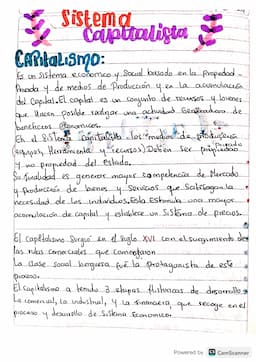 Sistema
Capitalista
CAPitalismo:
Es un Sistema economico y Social basado en la Propiedad
Privada y de medios de Producción y en la acumulación
del Capital. El capital es un conjunto de recursos y bienes
que Hacen posible realizar una actividad Generadora de
beneficios económicos.
En el Sistema Capitalista los "medios de producción
equipos, Herramienta y recursos) Deben ser
Privado
y no propiedad del Estado.
Su finalidad es generar mayor competencia de Mercado
y Producción de bienes y Servicios que Satisfagan la
necesidad de los individuos. Esto Estimula una mayor
acomulación de capital y establece un Sistema de precios.
El Capitalismo Surgió en el Siglo XVI con el surgimiento de
las rutas comerciales que comenzaron
La clase social burguesa fue la protagonista de este
proceso.
El capitalismo a tenido 3 etapas Historicas de desarrollo
La comercial, la industrial, y la financiera, que recoge en el
proceso y desarrollo de Sistema Economico.
Powered by CS CamScanner